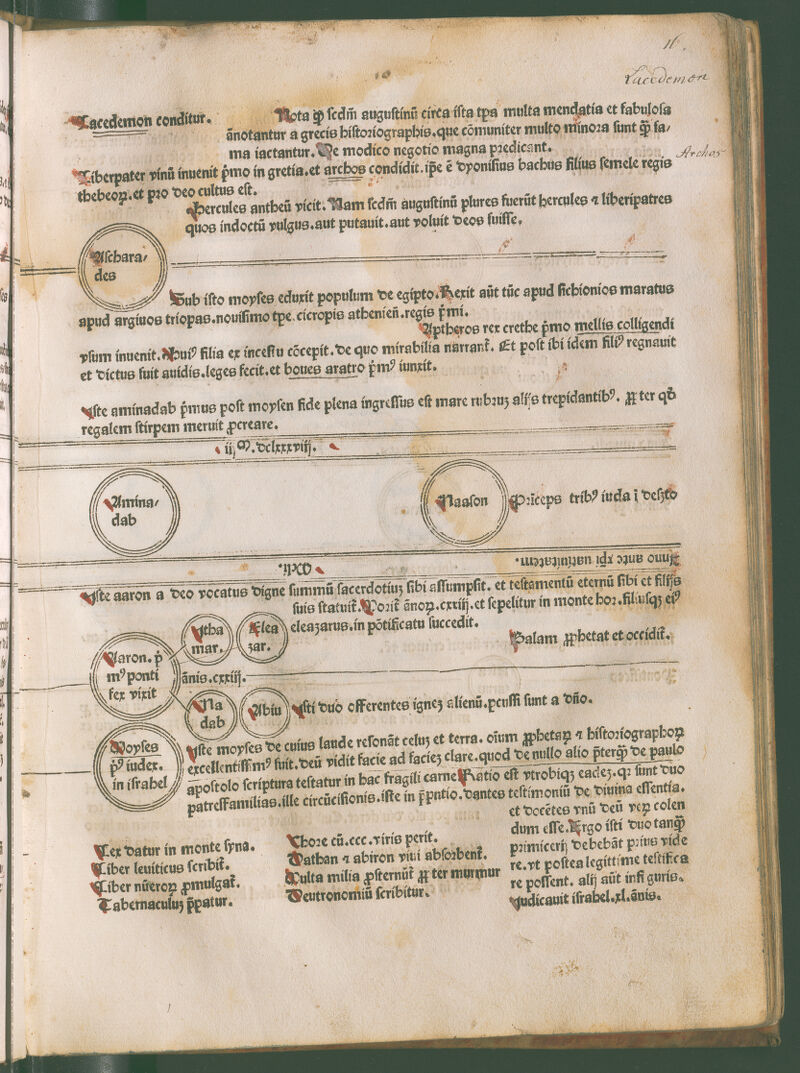 16.
Lacedemon
Lacedemon conditur.
Nota ꝙ scdm̄ augustinū circa ista tp̄a multa mendatia et fabulosa
ānotantur a grecis historiographis.que cōmuniter multo minora sunt ꝙ̄ fa⸗
ma iactantur. De modico negotio magna predicant.
Archos
Liberpater vinū inuenit p̄mo in gretia.et archos condidit.ip̄e ē dyonisius bachus filius semele regis
thebeoꝝ.et pro deo cultus est.
Hercules antheū vicit. Nam scdm̄ augustinū plures fuerūt hercules ⁊ liberipatres
quos indoctū vulgus.aut putauit.aut voluit deos fuisse.
Aschara⸗
des
Sub isto moyses eduxit populum de egipto.Rexit aūt tūc apud sichionios maratus
apud argiuos triopas.nouissimo tp̄e.cicropis athenieñ.regis p̄mi.
Aptheros rex crethe p̄mo mellis colligendi
vsum inuenit.Apuiꝰ filia ex incestu cōcepit.de quo mirabilia narrant̄. Et post ibi idem filiꝰ regnauit
et dictus fuit auidis.leges fecit.et boues aratro p̄mꝰ iunxit.
Iste aminadab p̄mus post moysen fide plena ingressus est mare rubꝛuꝫ alijs trepidantibꝰ. ꝓpter qd̓
regalem stirpem meruit ꝓcreare.
iiᷓᵐ.dclxxxviij.
Amina⸗
dab
Naason
Pīceps tribꝰ iuda ī desꝫto
Anno ante xp̄i natiuitatem.
Iste aaron a deo vocatus digne summū sacerdotiuꝫ sibi assumpsit. et testamentū eternū sibi et filijs
suis statuit.Morit̄ ānoꝝ.cxxiij.et sepelitur in monte hoꝛ.filiusqꝫ eiꝰ
eleaꝫarus.in pōtificatu succedit.
Balam ꝓphetat et occidit̄.
Ytha
mar.
Elea
ꝫar.
Aaron.p̄
mꝰ ponti
fex vixit
ānis.cxxiij.
Na
dab
Abiu
Isti duo offerentes igneꝫ alienū.ꝑcussi sunt a dn̄o.
Moyses
p̄ꝰ iudex.
in israhel
Iste moyses de cuius laude resonāt celuꝫ et terra. oīum ꝓphetaꝝ ⁊ historiographoꝝ
excellentissimꝰ fuit.deū vidit facie ad facieꝫ clare.quod de nullo alio p̄terqꝫ̄ de paulo
apostolo scriptura testatur in hac fragili carne.Ratio est vtrobiqꝫ eadeꝫ.qꝛ sunt duo
patresfamilias.ille circūcisionis.iste in p̄puntio.dantes testimoniū de diuina essentia.
et docētes vnū deū veꝝ colen
dum esse.Ergo isti duo tanqꝫ̄
primicerij debebāt pꝛius vide
re.vt postea legittime testifica
re possent. alij aūt in figuris.
Iudicauit israhel.xl.ānis.
Lex datur in monte syna.
Liber leuiticus scribit̄.
Liber nūeroꝝ ꝓmulgat̄.
Tabernaculuꝫ p̄patur.
Chore cū.ccc.viris perit.
Dathan ⁊ abiron viui absorbent̄.
Multa milia ꝓsternūt̄ ꝓpter murmur
Deutronomiū scribitur.